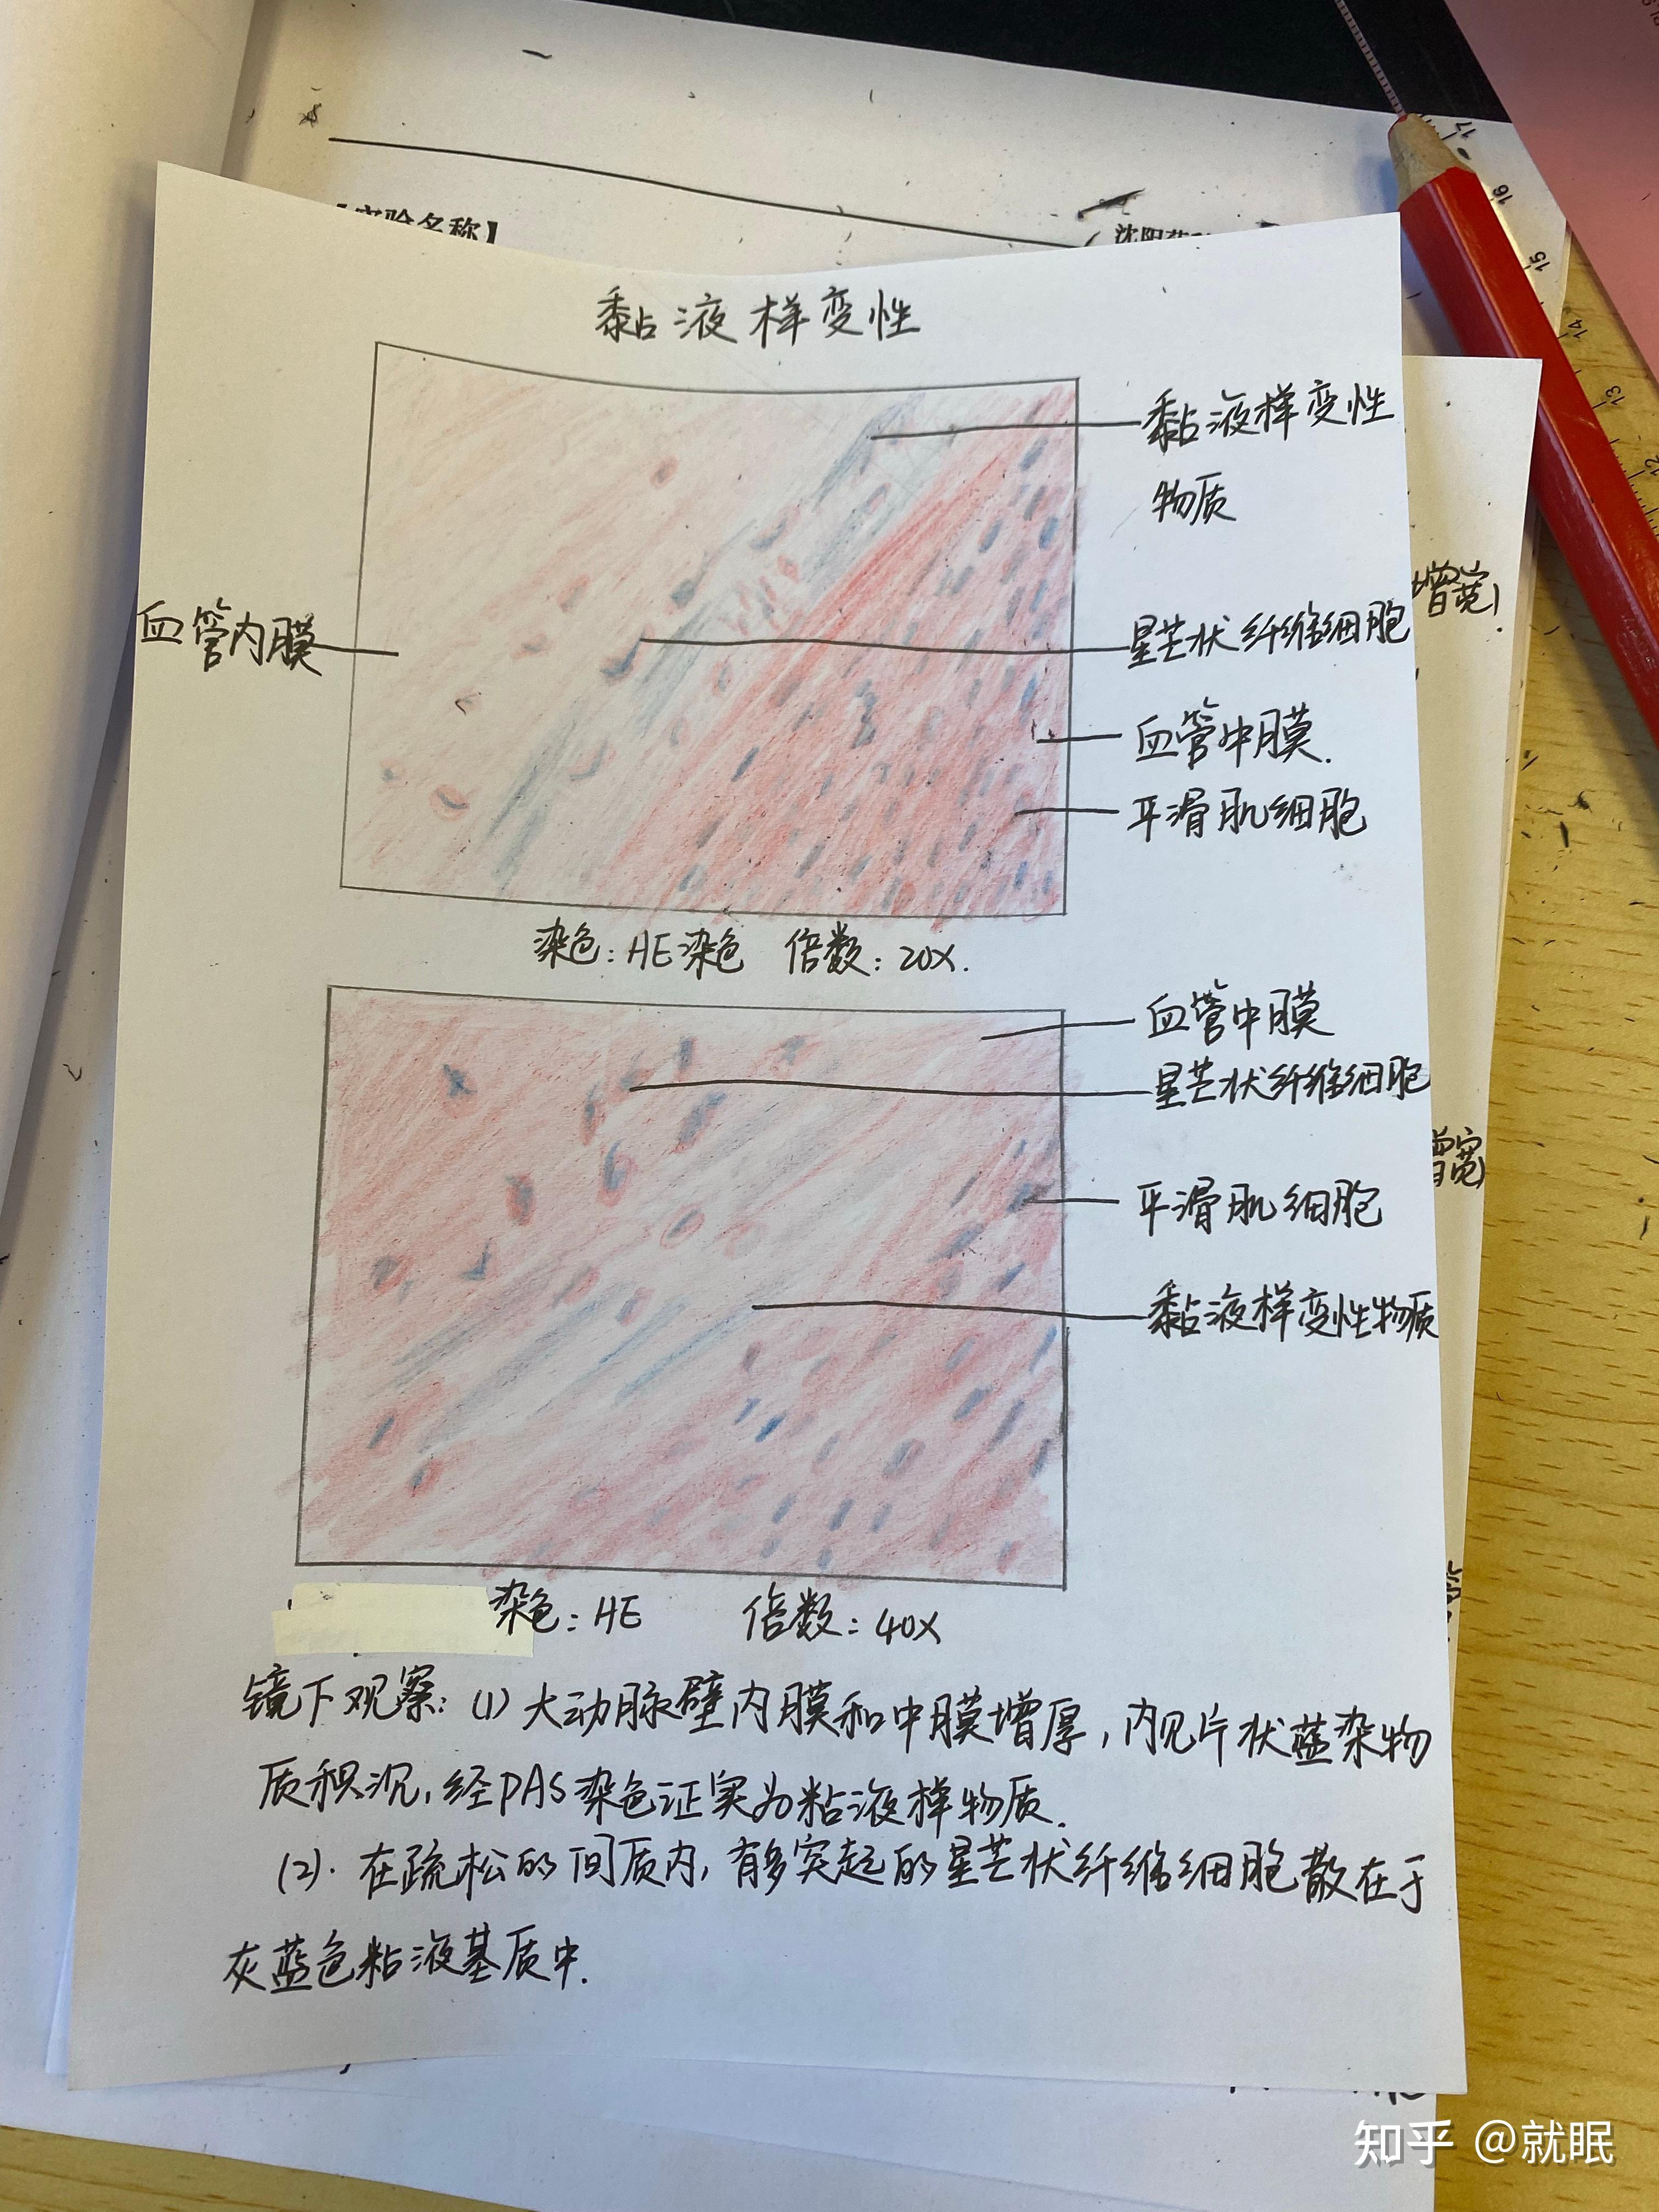 【实验名称】
黏液样变性
黏液样变性
物质
血管内膜
星芒状纤维细胞
血管中膜.
平滑肌细胞
染色：HE染色 倍数：20X.
血管中膜
星芒状纤维细胞
平滑肌细胞
黏液样变性物质
染色：HE 倍数：40X
镜下观察：(1)大动脉壁内膜和中膜增厚，内见片状蓝染物
质积沉，经PAS染色证实为粘液样物质.
(2). 在疏松的间质内，有多突起的星芒状纤维细胞散在于
灰蓝色粘液基质中.
增宽)
增宽)
17
16
15
14
13
12
知乎 @就眠